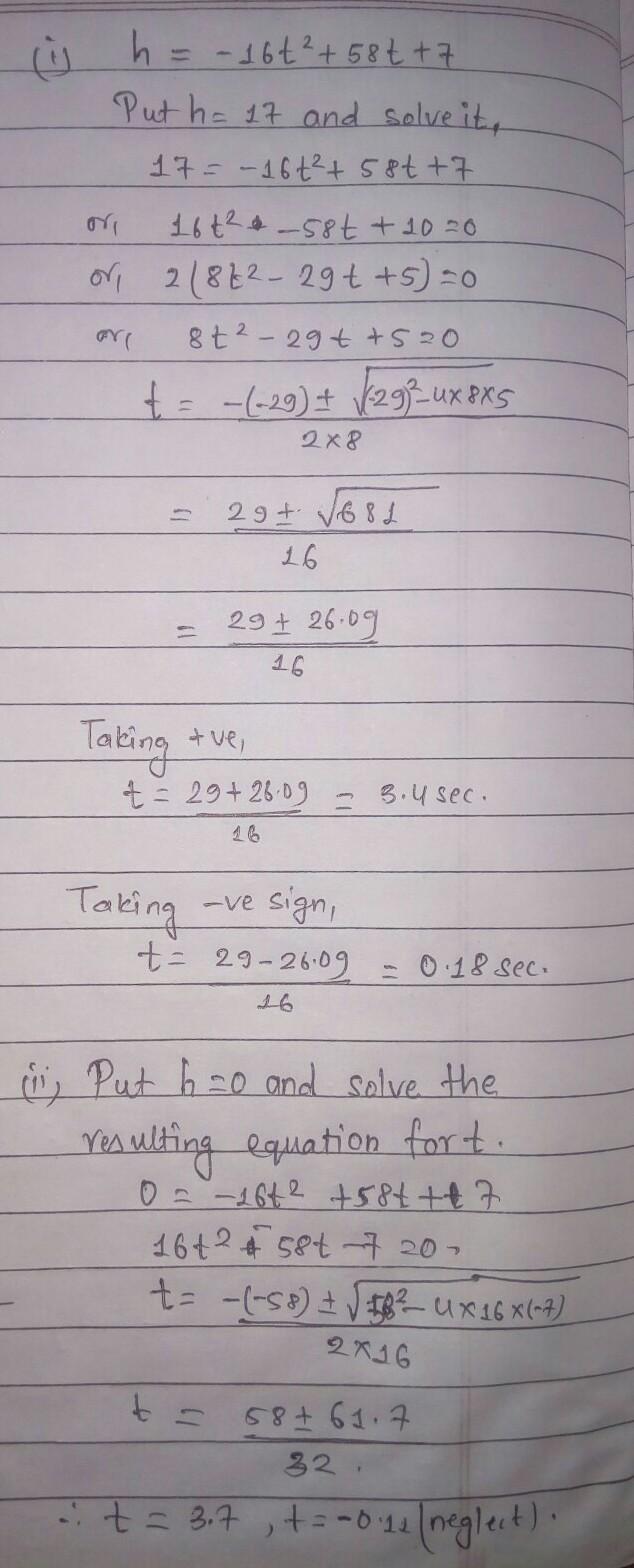 (i) h = -16t² + 58t + 7
Put h = 17 and solve it,
17 = -16t² + 58t + 7
or, 16t² - 58t + 10 = 0
or, 2(8t² - 29t + 5) = 0
or, 8t² - 29t + 5 = 0
t = -(-29) ± √(-29)² - 4×8×5
2×8
= 29 ± √681
16
= 29 ± 26.09
16
Taking +ve,
t = 29 + 26.09 = 3.4 sec.
16
Taking -ve sign,
t = 29 - 26.09 = 0.18 sec.
16
(ii) Put h = 0 and solve the
resulting equation for t.
0 = -16t² + 58t + 7
16t² - 58t - 7 = 0
t = -(-58) ± √58² - 4×16×(-7)
2×16
t = 58 ± 61.7
32.
∴ t = 3.7, t = -0.11 (neglect).